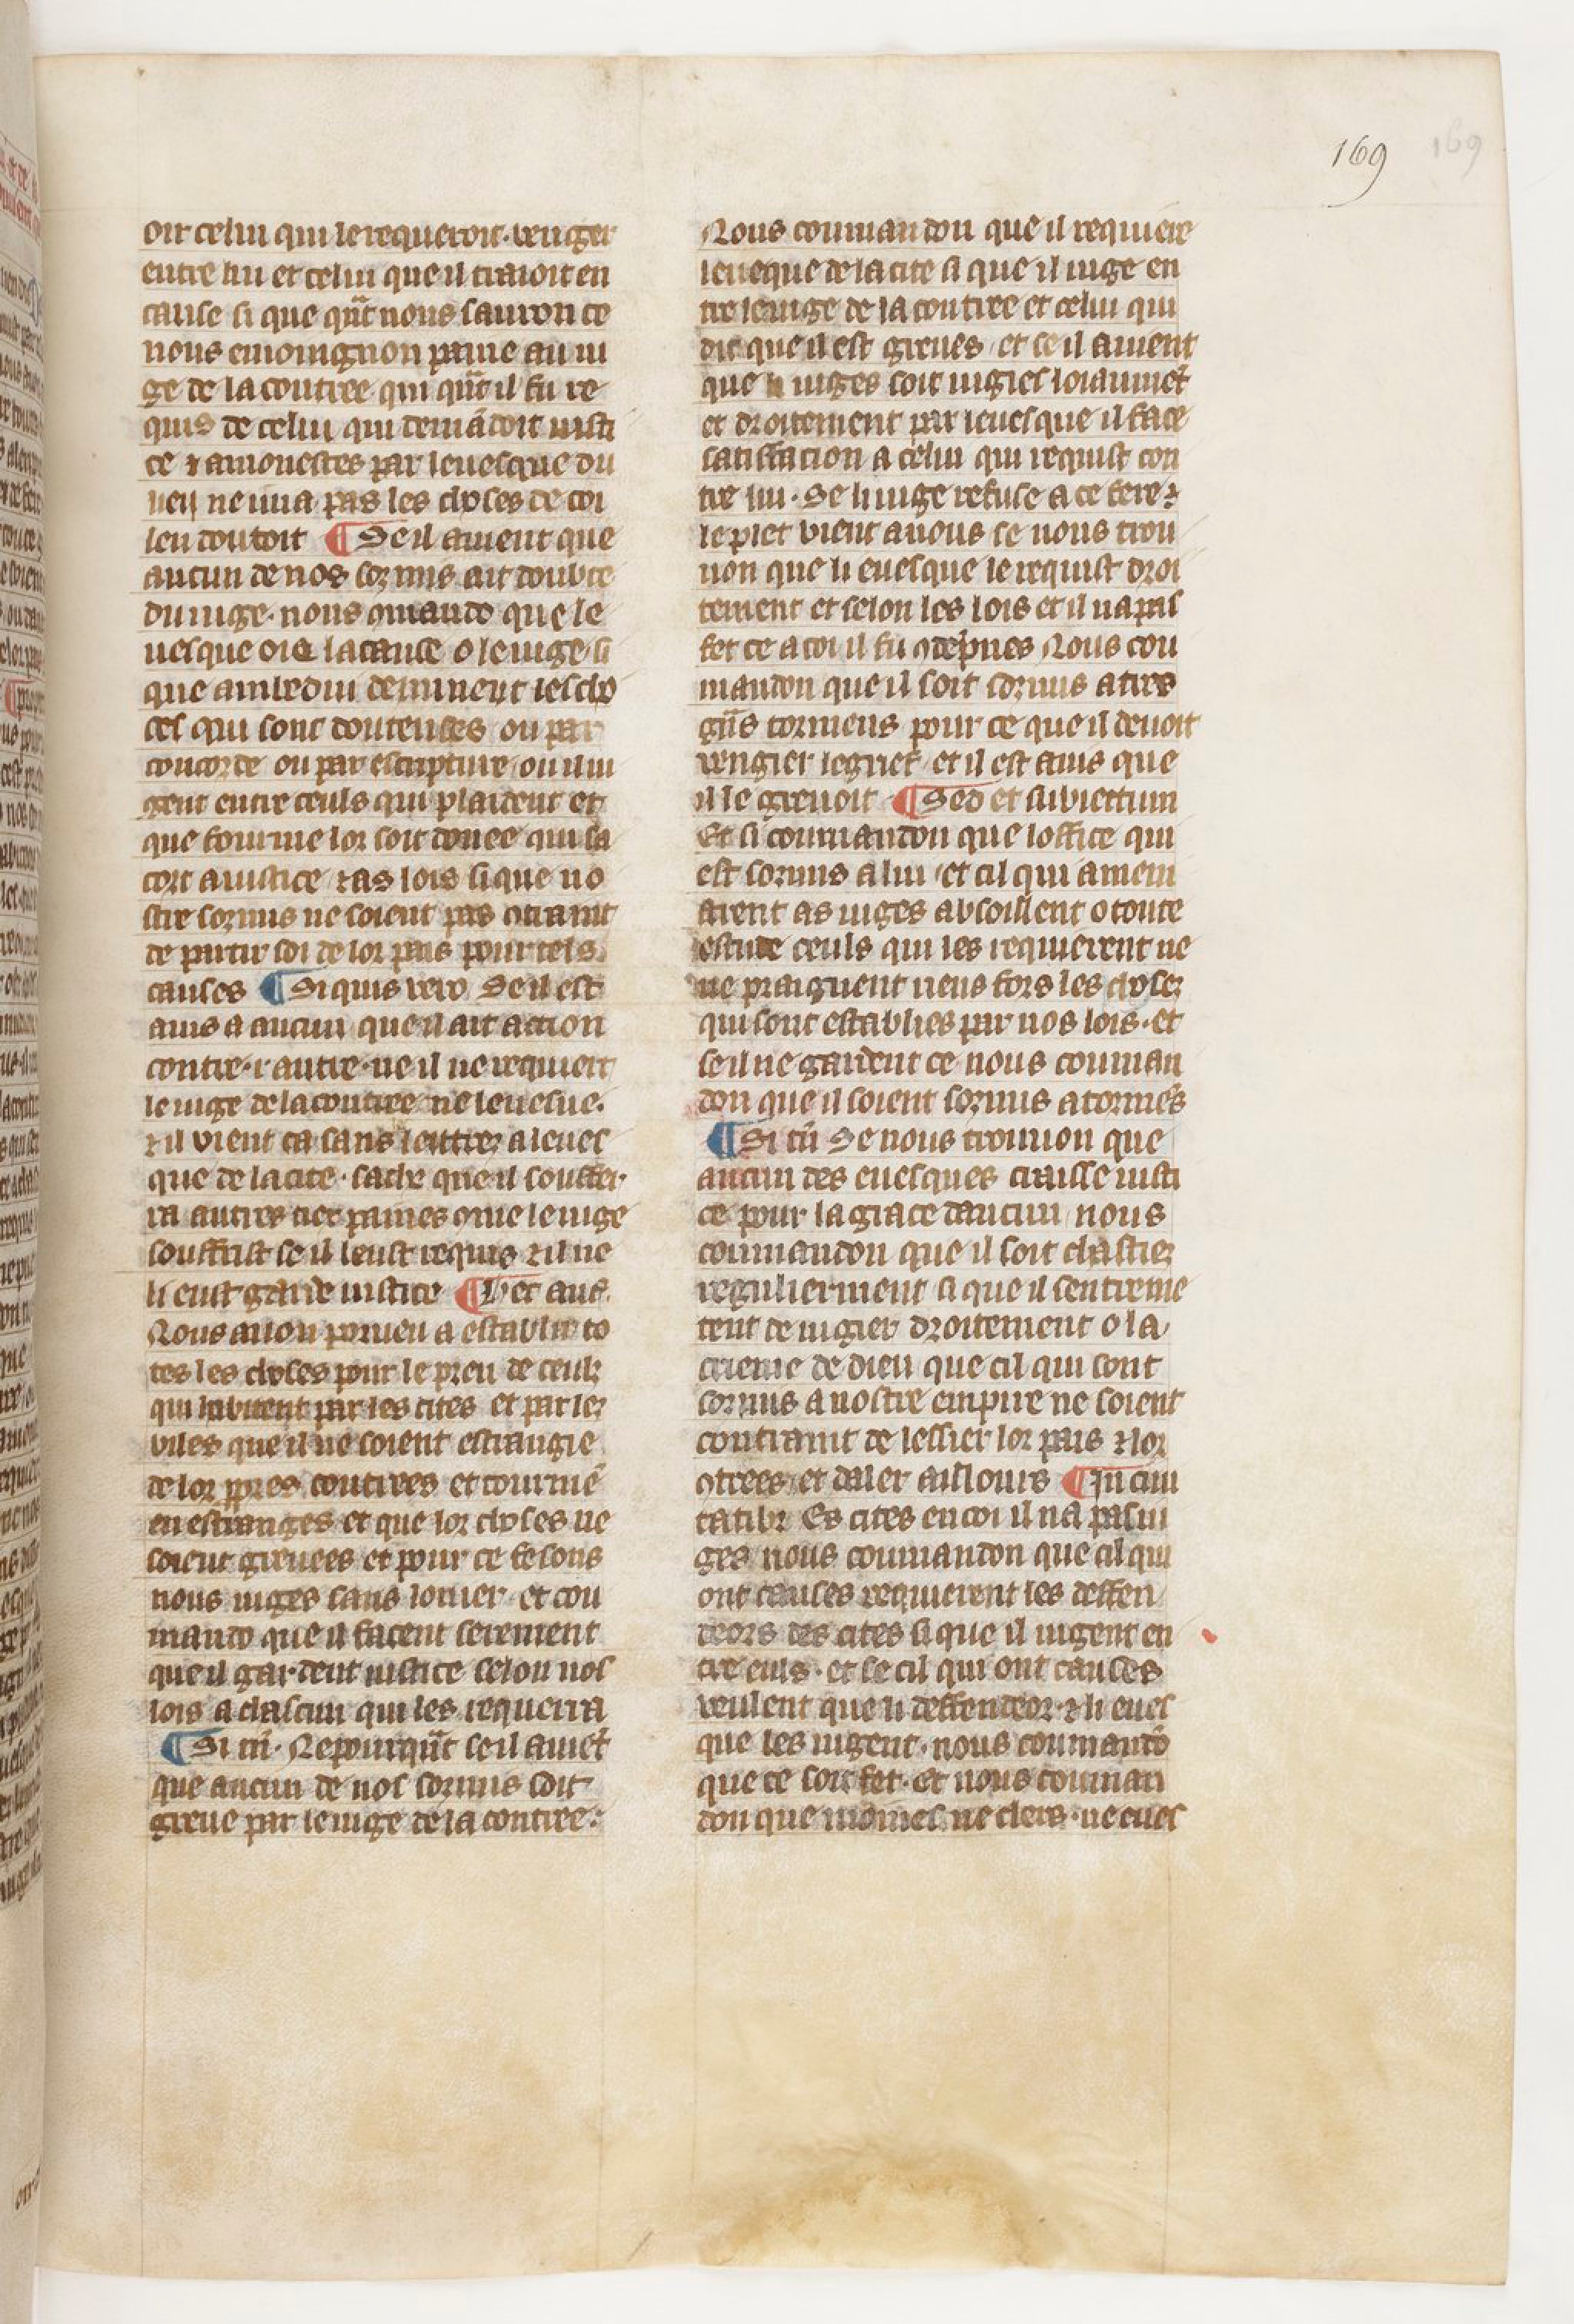 169
169
oir celui qui le requeroit. ou iugier
entre lui et celui que il traioit en
cause si que qnt nous sauron ce
nous enioingnon paine au iu
ge de la contree qui qnt il fu re
quis de celui qui demādoit iusti
ce ⁊ amonestes par leuesque du
lieu ne iuia pas les choses de coi
len doutoit ¶ Se il auient que
aucun de nos sozmis ait doubte
du iuge. nous ꝯmando que le
uesque oie la cause o le iuge si
que ambedui deminent les cho
ses qui sont douteuses ou par
concorde ou par escripture / ou il iu
gent entre ceuls qui plaident et
que fourme lor soit donee qui sa
cort a iustice ⁊ as lois si que no
stre sozmis ne soient pas ꝯtraint
de partir soi de lor pais pour tels
causes ¶ Si quis vero Se il est
auis a aucun que il ait action
contre .i. autre. ne il ne requiert
le iuge de la contree ne leuesue.
⁊ il vient ca sans lettrez a leues
que de la cite. sache que il souffer
ra autres tiex paines ꝯme le iuge
souffrist se il leust requis ⁊ il ne
li eust garde iustice ¶ Hec aut
Nous auon porueu a establir to
tes les choses pour le preu de ceulz
qui habitent par les cites et par lez
viles que il ne soient estrangie
de lor ꝓpres contrees et tourmē
en estranges et que lor choses ne
soient greuees et pour ce fesons
nous iuges sans louier. et cou
mando que il facent serement
que il gardent iustice selon nos
lois a chascun qui les requerra
¶ Si tn̄. Nepourqnt se il auiēt
que aucun de nos sozmis soit
greue par le iuge de la contree:
Nous coumandon que il requiere
leueque de la cite si que il iuge en
tre le iuge de la contree et celui qui
dit que il est greues / et ce il auient
que li iuges soit iugies loiaumēt
et droitement par leuesque il face
satiffacion a celui qui requist con
tre lui. Se li iuge refuse a ce fere:
le plet vient a nous se nous trou
uon que li euesque le requist droi
tement et selon les lois et il na pas
fet ce a coi il fu ꝯdēpnes Nous cou
mandon que il soit sozmis a tres
gns tormens pour ce que il deuoit
vengier le grief / et il est auis que
il le greuoit ¶ Sed et subiectum
Et si coumandon que loffice qui
est sozmis a lui / et cil qui amem
aient as iuges absoillent o toute
estude ceuls qui les requierent ne
ne praignent neus fors les chosez
qui sont establies par nos lois. et
se il ne gardent ce nous couman
don que il soient sozmis a tormēs
¶ Si tn̄ Se nous trouuon que
aucun des euesques traisse iusti
ce pour la grace daucun / nous
coumandon que il soit chastiez
regulierment si que il sentreme
tent de iugier droitement o la
crieme de dieu que cil qui sont
sozmis a nostre empire ne soient
contraint de lessier lor pais ⁊ lor
ꝯtrees / et daler aillours ¶ In ciui
tatibꝫ Es cites en coi il na pas iu
ges / nous coumandon que cil qui
ont causes requierent les deffen
deors des cites si que il iugent en
tre euls. et se cil qui ont causes
veulent que li deffendeor ⁊ li eues
que les iugent. nous coumandō
que ce soit fet. Et nous couman
don que moines ne clers. ne eues